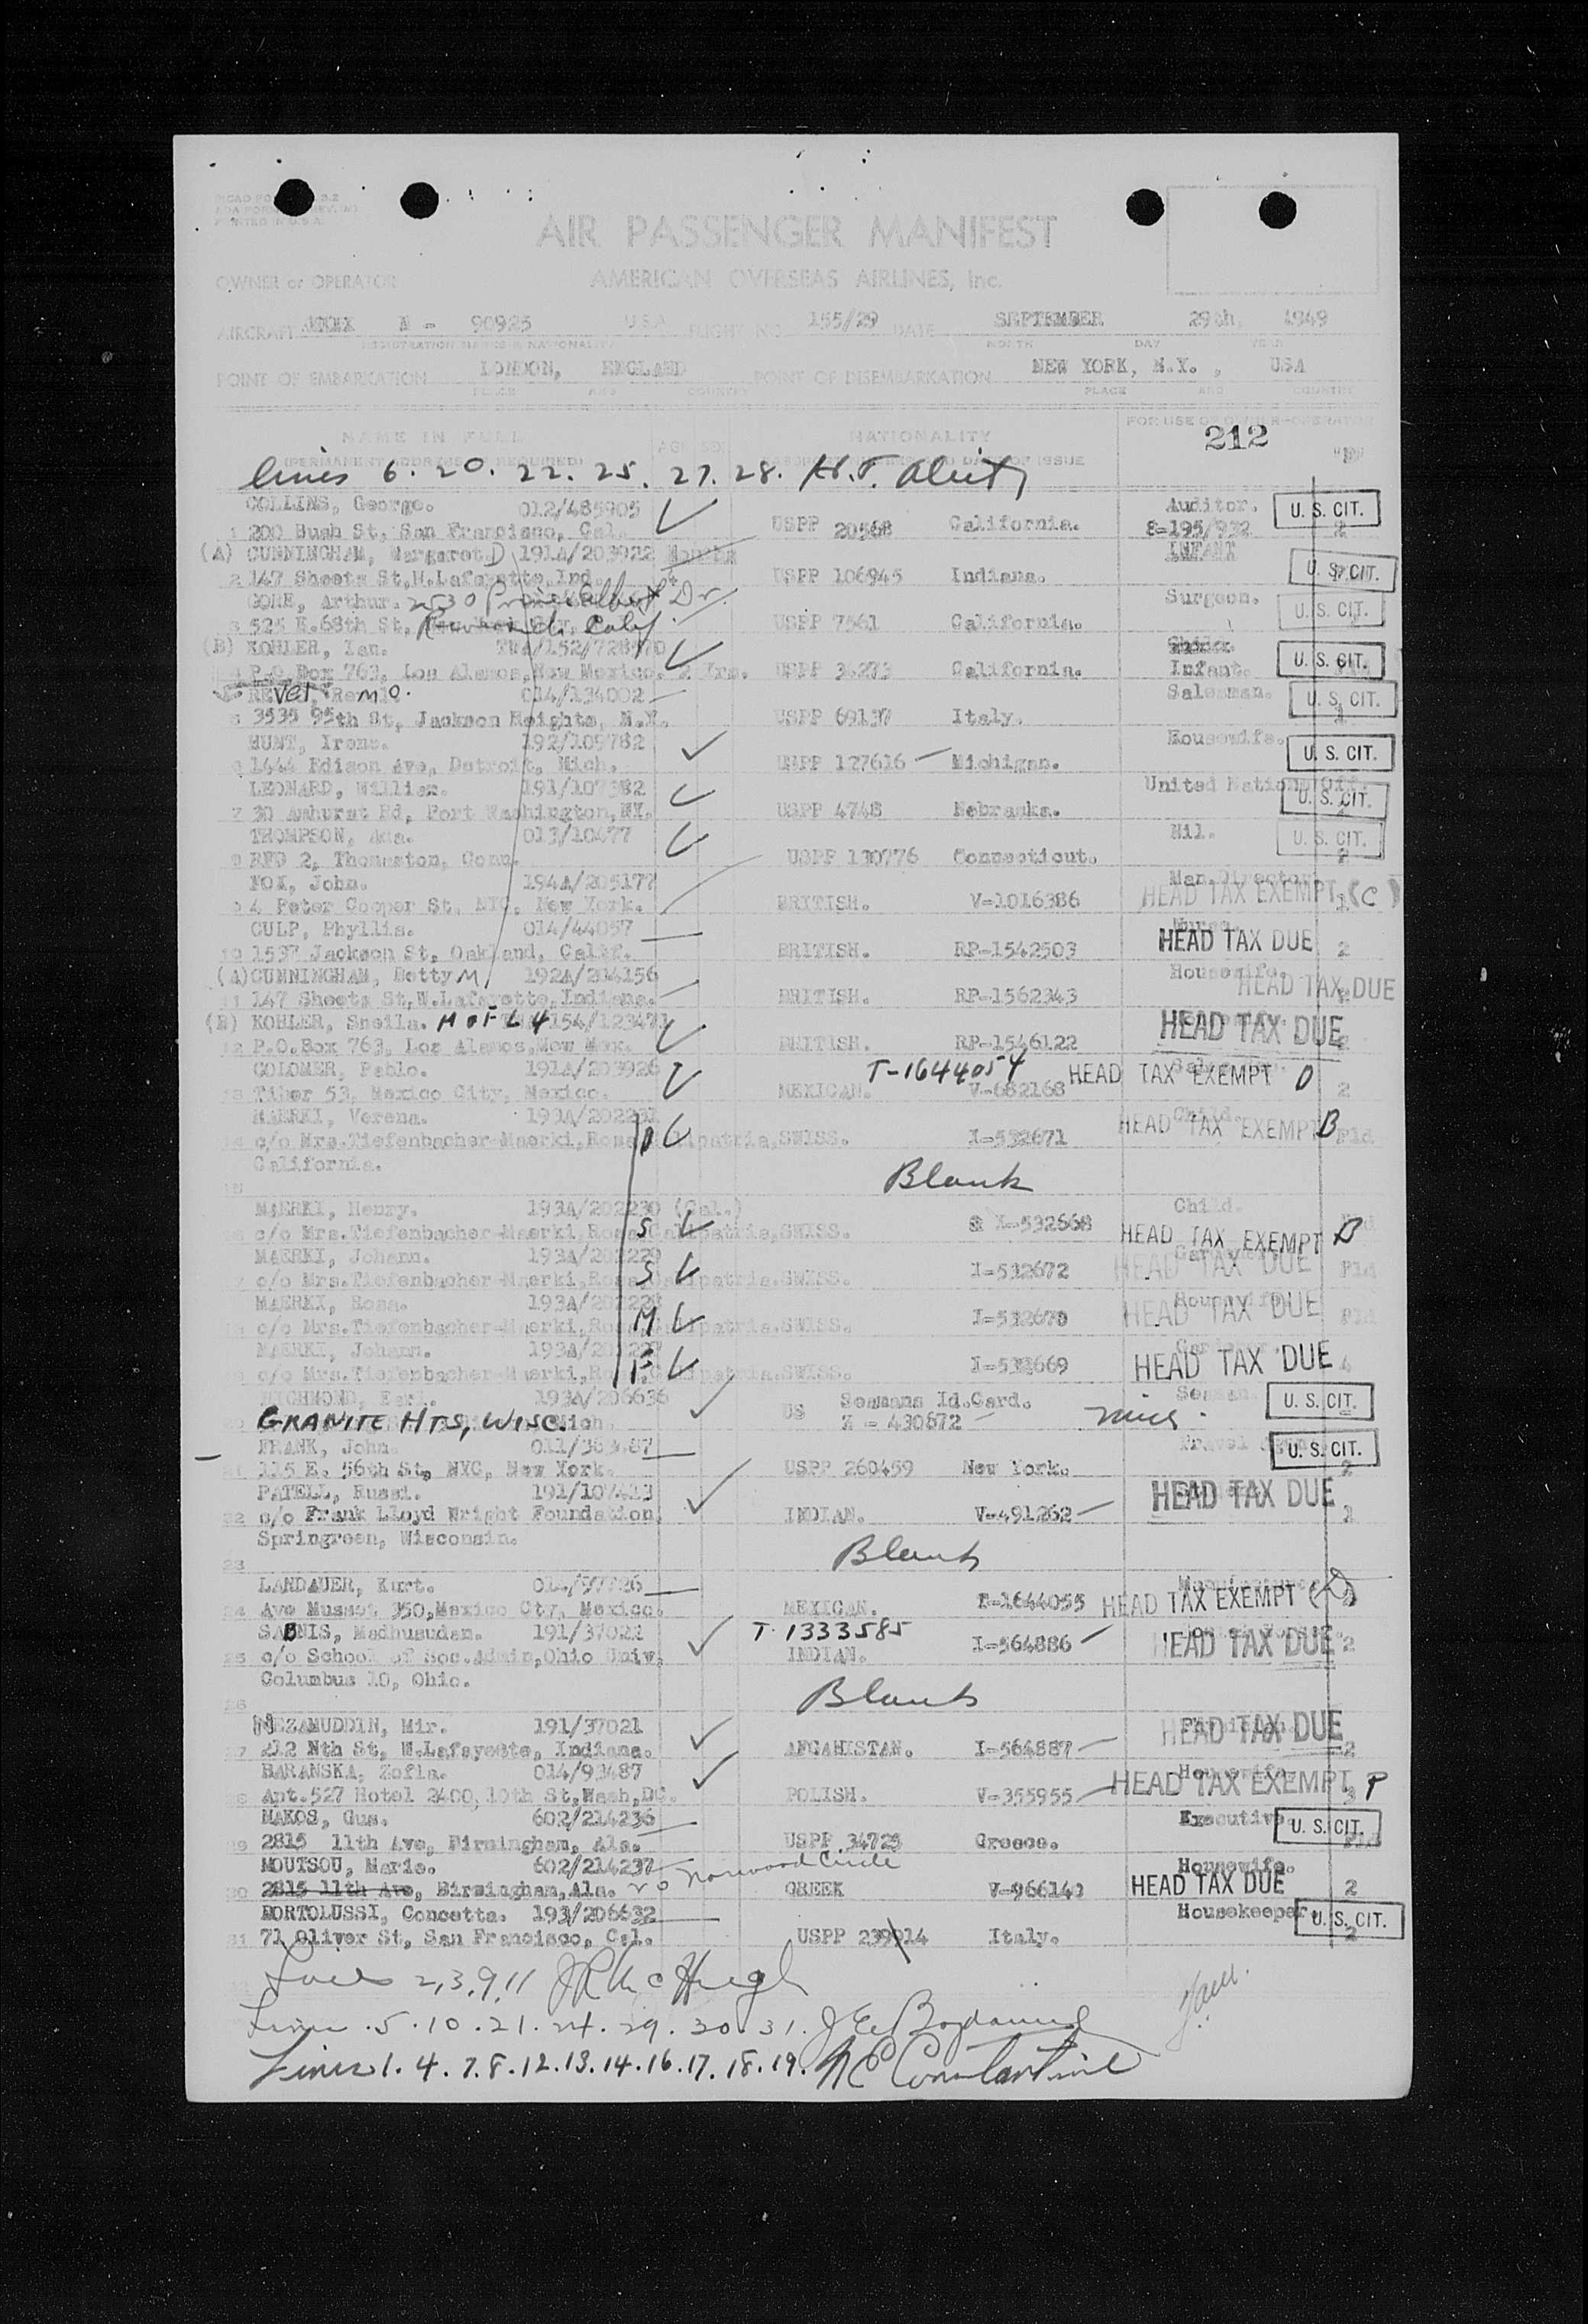 AIR PASSENGER MANIFEST
OWNER or OPERATOR AMERICAN OVERSEAS AIRLINES, Inc.
AIRCRAFT N - 90925 USA FLIGHT NO. 155/29 DATE SEPTEMBER 29th, 1949
REGISTRATION MARKS & NATIONALITY MONTH DAY YEAR
POINT OF EMBARKATION LONDON, ENGLAND POINT OF DISEMBARKATION NEW YORK, N.Y., USA
PLACE AND COUNTRY PLACE AND COUNTRY
NAME IN FULL AGE SEX NATIONALITY FOR USE OF OWNER-OPERATOR
212
Lines 6. 20. 22. 25. 27. 28. H.T.
COLLINS, George. 012/485905 Auditor. U. S. CIT.
1 200 Bush St, San Francisco, Cal. USPP 20568 California. 8-195/932 2
(A) CUNNINGHAM, Margaret D 191A/203922 Months INFANT
2 147 Sheets St,W.Lafayette,Ind. USPP 106945 Indiana. U. S. CIT.
GOME, Arthur. 2530 Dr. Surgeon. U. S. CIT.
3 525 E.68th St, Calif. USPP 7561 California.
(B) KOHLER, Ian. TWA/152/728570 Child.
4 P.O. Box 763, Los Alamos,New Mexico. 2 Yrs. USPP 34273 California. Infant. U. S. CIT.
014/134002 Salesman. U. S. CIT.
5 3535 95th St, Jackson Heights, N.Y. USPP 69137 Italy.
HUNT, Irene. 192/109782 Housewife.
6 1444 Edison Ave, Detroit, Mich. USPP 127616 Michigan. U. S. CIT.
LEONARD, William. 191/107382 United Nations Off.
7 30 Amhurst Rd, Port Washington,NY. USPP 4748 Nebraska. U. S. CIT.
THOMPSON, Ada. 013/10477 Nil. U. S. CIT.
8 RFD 2, Thomaston, Conn. USPP 130776 Connecticut. 2
FOX, John. 194A/205177 Man.Director.
9 4 Peter Cooper St, NYC, New York. BRITISH. V-1016386 HEAD TAX EXEMPT (C)
CULP, Phyllis. 014/44057 Nurse.
10 1537 Jackson St, Oakland, Calif. BRITISH. RP-1542503 HEAD TAX DUE 2
(A) CUNNINGHAM, Betty M. 192A/204156 Housewife.
11 147 Sheets St,W.Lafayette,Indiana. BRITISH. RP-1562343 HEAD TAX DUE
(B) KOHLER, Sheila. M OF L 4 154/123471 HEAD TAX DUE
12 P.O.Box 763, Los Alamos,New Mex. BRITISH. RP-1546122 2
COLOMER, Pablo. 191A/203926 T-1644054 HEAD TAX EXEMPT D
13 Tiber 53, Mexico City, Mexico. MEXICAN. V-682168 2
MAERKI, Verena. 193A/202231 D Child. HEAD TAX EXEMPT B
14 c/o Mrs.Tiefenbacher-Maerki,Rosa, Calipatria, SWISS. I-532671 Pld
California.
15 Blank
MAERKI, Henry. 193A/202230 (Cal.) Child.
16 c/o Mrs.Tiefenbacher-Maerki,Rosa,Calipatria,SWISS. S I-532668 HEAD TAX EXEMPT B
MAERKI, Johann. 193A/202229
17 c/o Mrs.Tiefenbacher-Maerki,Rosa,Calipatria.SWISS. S I-532672 HEAD TAX DUE Pld
MAERKI, Rosa. 193A/202228 Housewife.
18 c/o Mrs.Tiefenbacher-Maerki,Rosa,Calipatria.SWISS. M I-532670 HEAD TAX DUE Pld
MAERKI, Johann. 193A/202227
19 c/o Mrs.Tiefenbacher-Maerki,Rosa,Calipatria.SWISS. F I-532669 HEAD TAX DUE
RICHMOND, Earl. 193A/206636 Seamans Id.Card. Seaman. U. S. CIT.
20 GRANITE HTS, WISC. Mich. US Z - 430672
FRANK, John. Travel U. S. CIT.
21 115 E. 56th St, NYC, New York. USPP 260459 New York. 2
PATELL, Russi. 191/107413
22 c/o Frank Lloyd Wright Foundation, INDIAN. V-491262 HEAD TAX DUE
Springreen, Wisconsin.
23 Blank
LANDAUER, Kurt. 014/97726
24 Ave Musset 350,Mexico Cty, Mexico. MEXICAN. 1644055 HEAD TAX EXEMPT (D)
SABNIS, Madhusudan. 191/37022 T-1333585
25 c/o School of Soc.Admin,Ohio Univ, INDIAN. I-564886 HEAD TAX DUE 2
Columbus 10, Ohio.
26 Blank
NIZAMUDDIN, Mir. 191/37021
27 212 Nth St, W.Lafayette, Indiana. AFGAHISTAN. I-564887 HEAD TAX DUE 2
BARANSKA, Zofia. 014/93487 Housewife.
28 Apt.527 Hotel 2400, 10th St,Wash,DC. POLISH. V-355955 HEAD TAX EXEMPT P
MAKOS, Gus. 602/214236 Executive.
29 2815 11th Ave, Birmingham, Ala. USPP 34725 Greece. U. S. CIT.
MOUTSOU, Marie. 602/214237 Norwood Circle Housewife.
30 2815 11th Ave, Birmingham,Ala. GREEK V-966140 HEAD TAX DUE 2
BORTOLUSSI, Concetta. 193/206632 Housekeeper.
31 71 Oliver St, San Francisco, Cal. USPP 239914 Italy. U. S. CIT. 2
Lines 2,3,9,11 J R McHugh
Lines .5.10.21.24.29.30.31.
Lines 1.4.7.8.12.13.14.16.17.18.19. N E Constantine